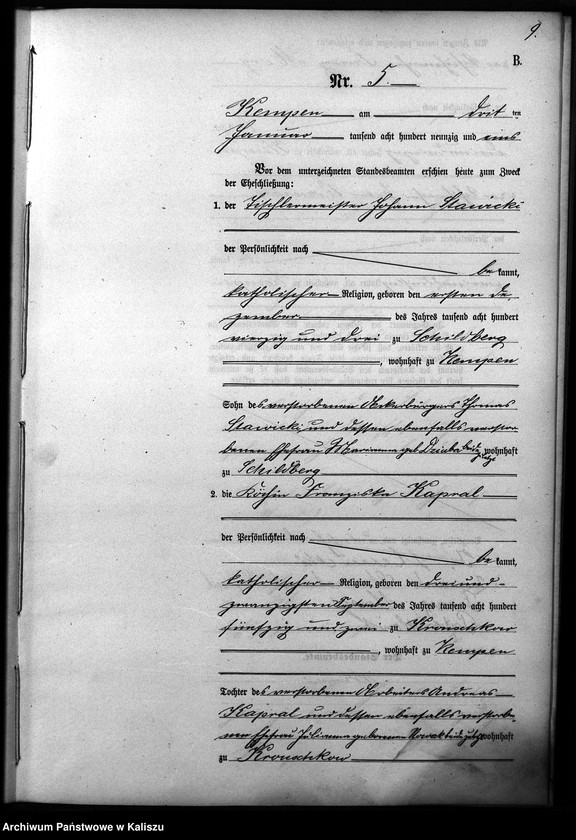 9.
B.
Nr. 5.
Kempen am drit ten
Januar tausend acht hundert neunzig und eins
Vor dem unterzeichneten Standesbeamten erschien heute zum Zweck
der Eheschließung:
1. der Tischlermeister Johann Stawicki
der Persönlichkeit nach
be kannt,
katholischer Religion, geboren den ersten De
zember des Jahres tausend acht hundert
vierzig und drei zu Schildberg
, wohnhaft zu Kempen
Sohn des verstorbenen Ackerbürgers Thomas
Stawicki und dessen ebenfalls verstor
benen Ehefrau Marianna geb Dziuba beide zuletzt wohnhaft
zu Schildberg
2. die Köchin Franziska Kapral
der Persönlichkeit nach
be kannt,
katholischer Religion, geboren den drei und
zwanzigsten September des Jahres tausend acht hundert
fünfzig und zwei zu
, wohnhaft zu Kempen
Tochter des verstorbenen Arbeiters Andreas
Kapral und dessen ebenfalls verstorbe
nen Ehefrau Julianna geborenen Nowak beide zuletzt wohnhaft
zu
Archiwum Państwowe w Kaliszu